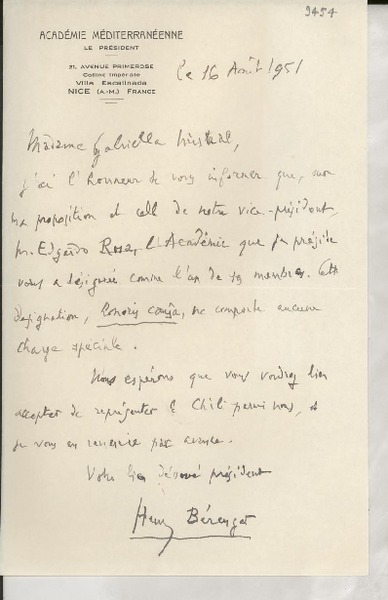 9454
ACADÉMIE MÉDITERRANÉENNE
LE PRÉSIDENT
21, AVENUE PRIMEROSE
Colline Impériale
Villa Escalinada
NICE (A.-M.) FRANCE
le 16 Août 1951
Madame Gabriella Mistral,
j'ai l'honneur de vous informer que, sur
ma proposition et cell de notre vice-président,
M. Edgardo Rosa, l'Académie que je préside
vous a désignée comme l'un de ses membres. Cette
désignation, honoris causa, ne comporte aucune
charge spéciale.
Nous espérons que vous voudrez bien
accepter de représenter le Chili parmi nous, et
je vous en remercie par avance.
Votre bien dévoué président
Henry Bérenger